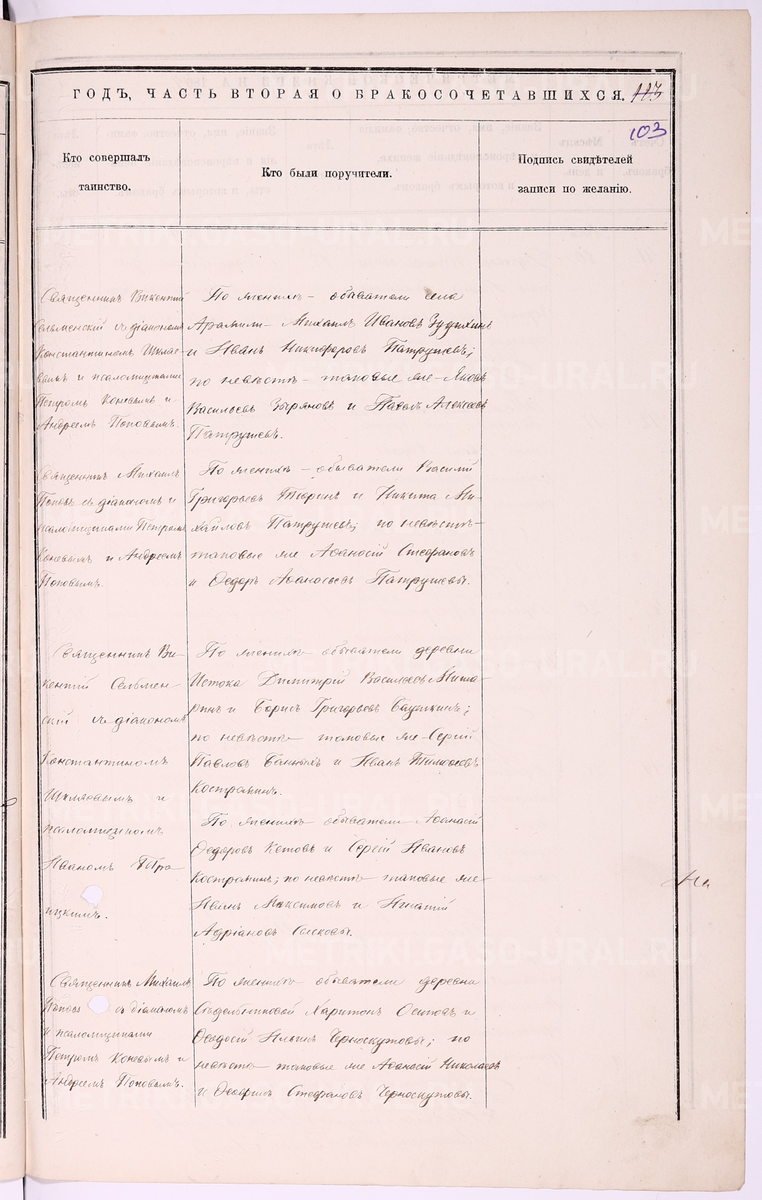 ГОДЪ, ЧАСТЬ ВТОРАЯ О БРАКОСОЧЕТАВШИХСЯ.
113
103
Кто совершалъ
таинство.
Кто были поручители.
Подпись свидѣтелей
записи по желанію.
Священникъ Викентій
Сельменскій съ діакономъ
Константиномъ
и псаломщиками
Петромъ Коневымъ и
Андреемъ Поповымъ.
По женихѣ – обыватели села
Арамили – Михаилъ Ивановъ
и Иванъ Никифоровъ Патрушевъ;
по невѣстѣ – таковые же – Яковъ
Васильевъ Зыряновъ и Павелъ Алексѣевъ
Патрушевъ.
Священникъ Михаилъ
Поповъ съ діакономъ и
псаломщиками Петромъ
Коневымъ и Андреемъ
Поповымъ.
По женихѣ – обыватели Василій
Григорьевъ Тюринъ и Никита Ми-
хайловъ Патрушевъ; по невѣстѣ –
таковые же Аѳанасій Стефановъ
и Ѳедоръ Аѳанасьевъ Патрушевы.
Священникъ Ви-
кентій Сельмен-
скій съ діакономъ
Константиномъ
и
псаломщикомъ
Иваномъ
ицкимъ.
По женихѣ обыватели деревни
Истока Димитрій Васильевъ
и Борисъ Григорьевъ
по невѣстѣ таковые же – Сергій
Павловъ Банныхъ и Иванъ Тимоѳеевъ
Костромин.
По женихѣ обыватели Аѳанасій
Ѳедоровъ Кетовъ и Сергій Ивановъ
Костромин; по невѣстѣ таковые же
Иванъ Максимовъ и Игнатій
Адріановъ
Священникъ Михаилъ
Поповъ съ діакономъ
и псаломщиками
Петромъ Коневымъ и
Андреемъ Поповымъ.
По женихѣ обыватели деревни
Харитонъ Осиповъ и
Ѳедосій Ильинъ Черноскутовы; по
невѣстѣ таковые же Аѳанасій Николаевъ
и Стефановъ Черноскутовы.
METRIKI.GASO-URAL.RU